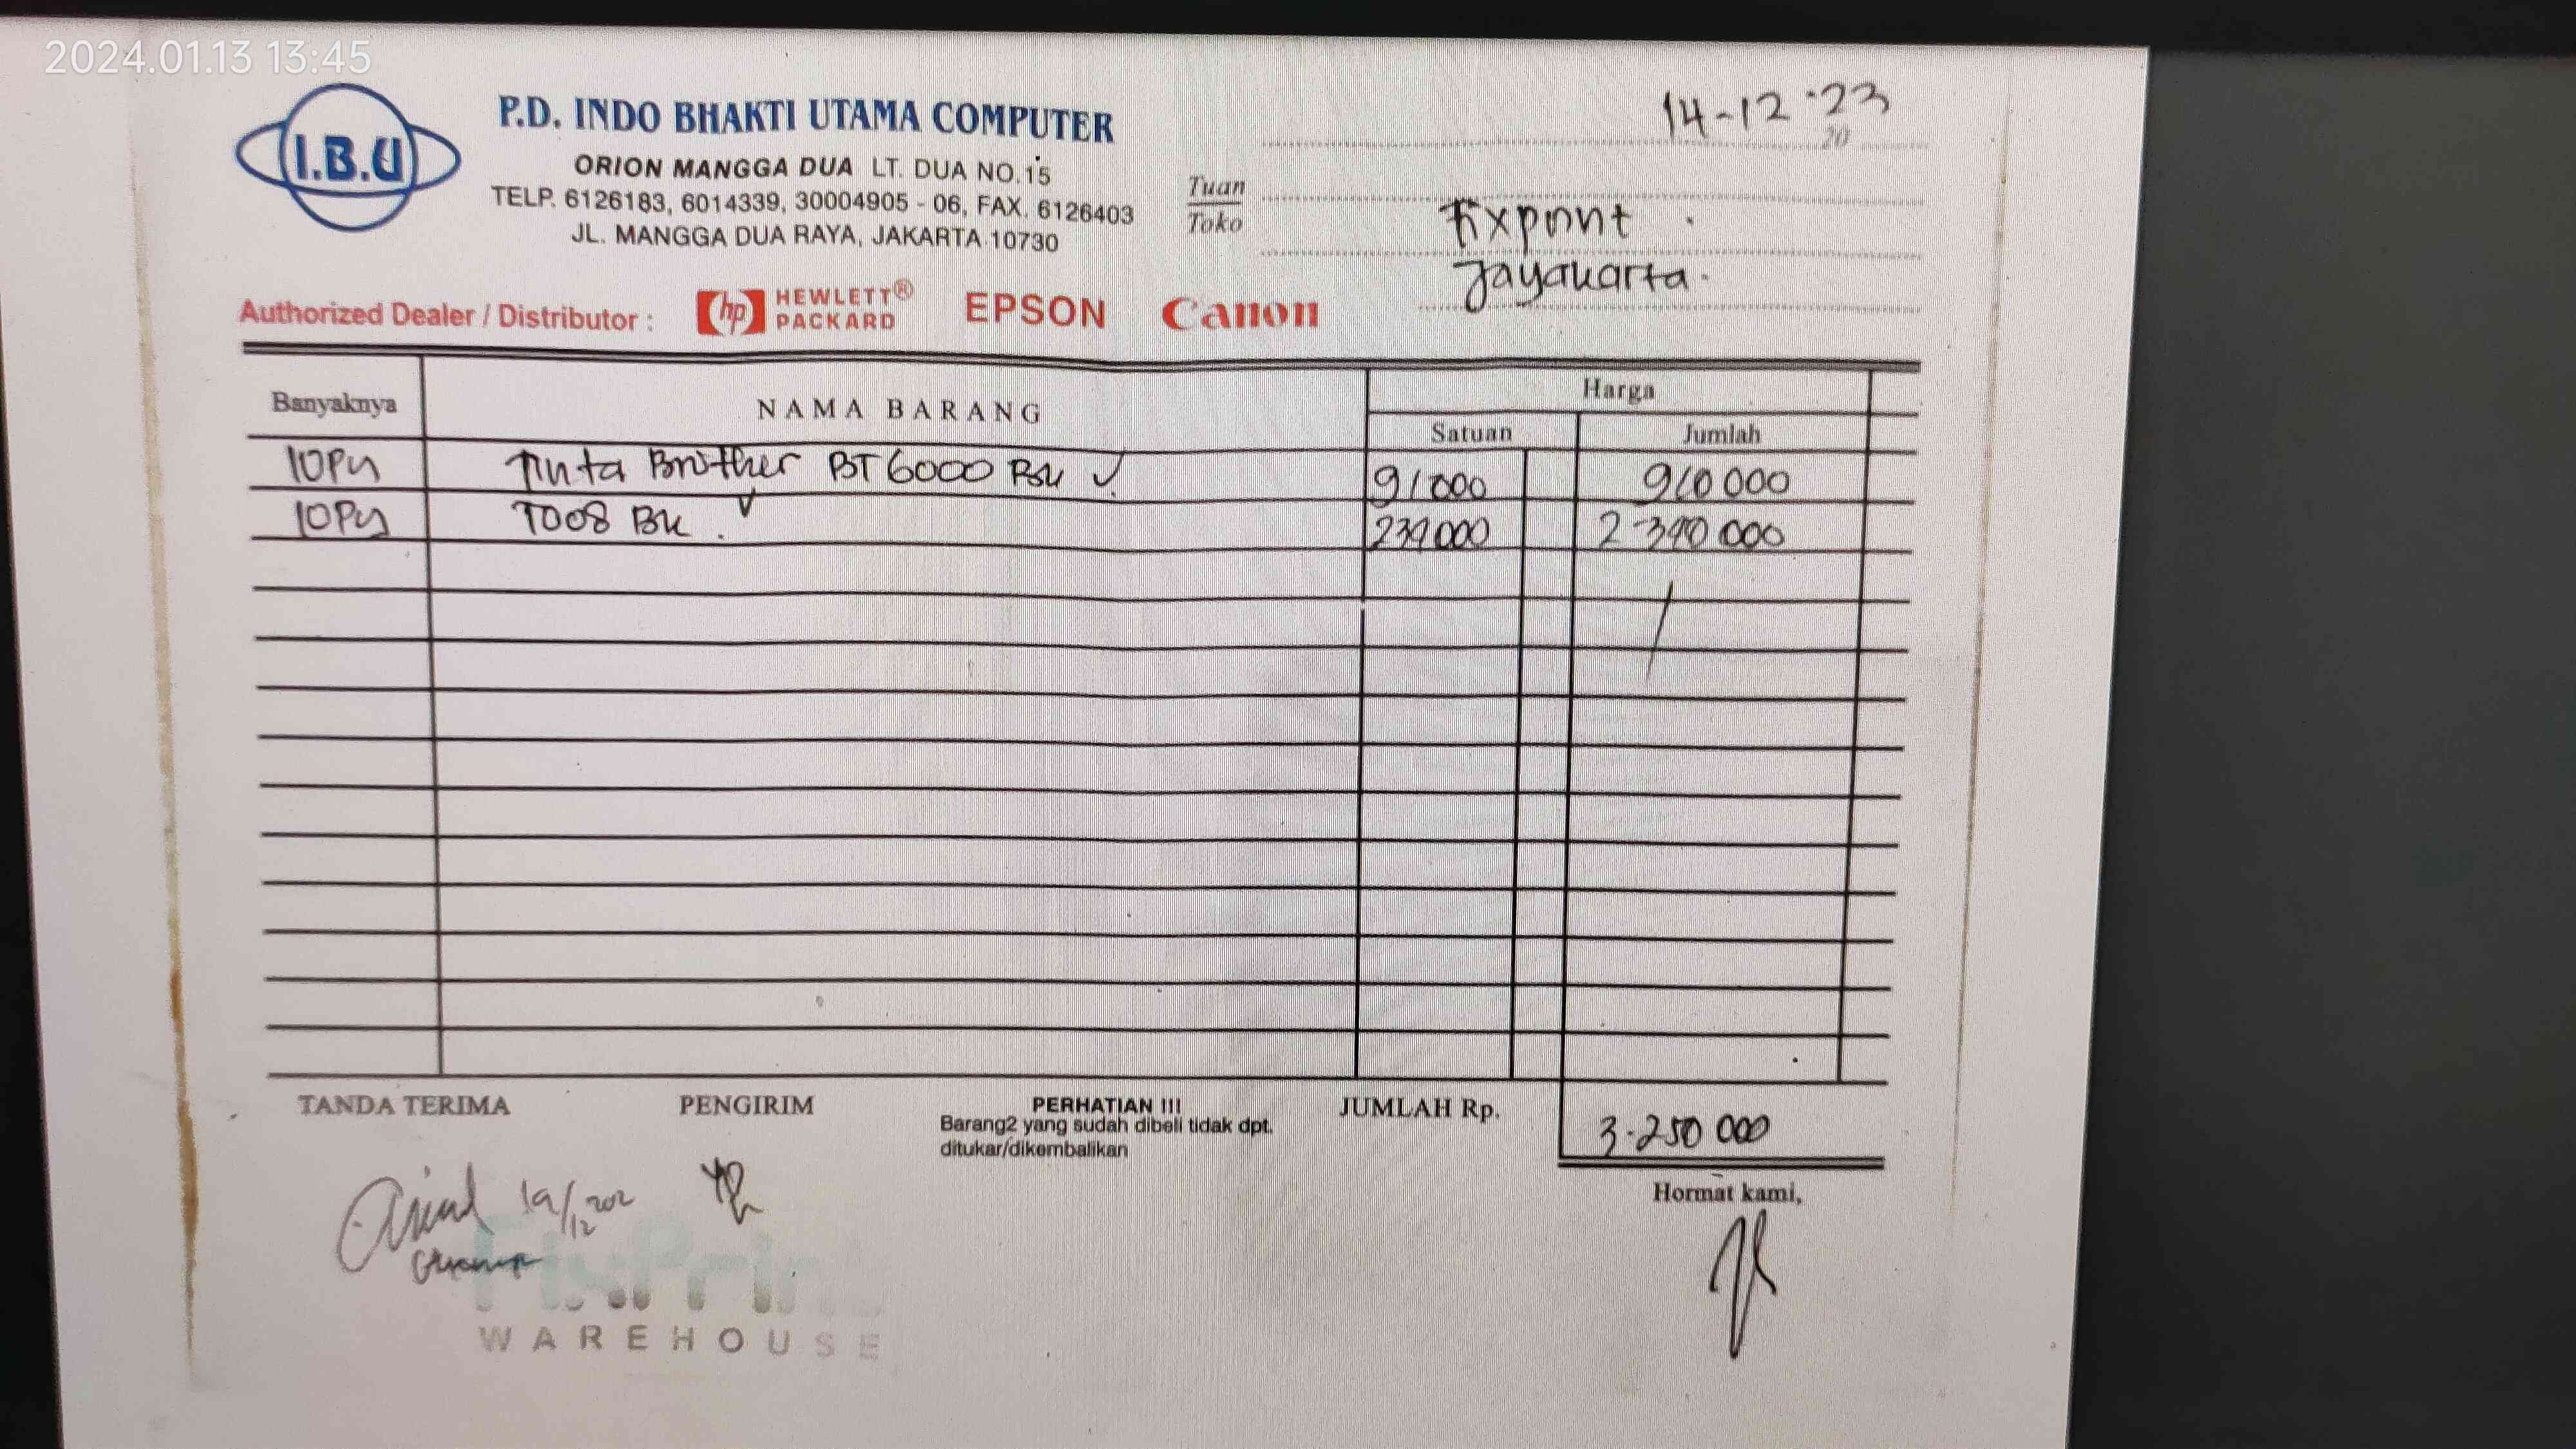 2024.01.13 13:45
I.B.U
P.D. INDO BHAKTI UTAMA COMPUTER
ORION MANGGA DUA LT. DUA NO.15
TELP. 6126183, 6014339, 30004905 - 06, FAX. 6126403
JL. MANGGA DUA RAYA, JAKARTA 10730
14-12 '23
20
Tuan
Toko
Fixprint
Jayakarta.
Authorized Dealer / Distributor :
hp HEWLETT® PACKARD
EPSON
Canon
Banyaknya NAMA BARANG Harga
Satuan Jumlah
10 Pcs Tinta Brother BT 6000 BK 91000 910 000
10 Pcs T008 BK. 239000 2 390 000
TANDA TERIMA PENGIRIM PERHATIAN !!! JUMLAH Rp. 3.250 000
Barang2 yang sudah dibeli tidak dpt.
ditukar/dikembalikan
Hormat kami,
FixPrint
WAREHOUSE